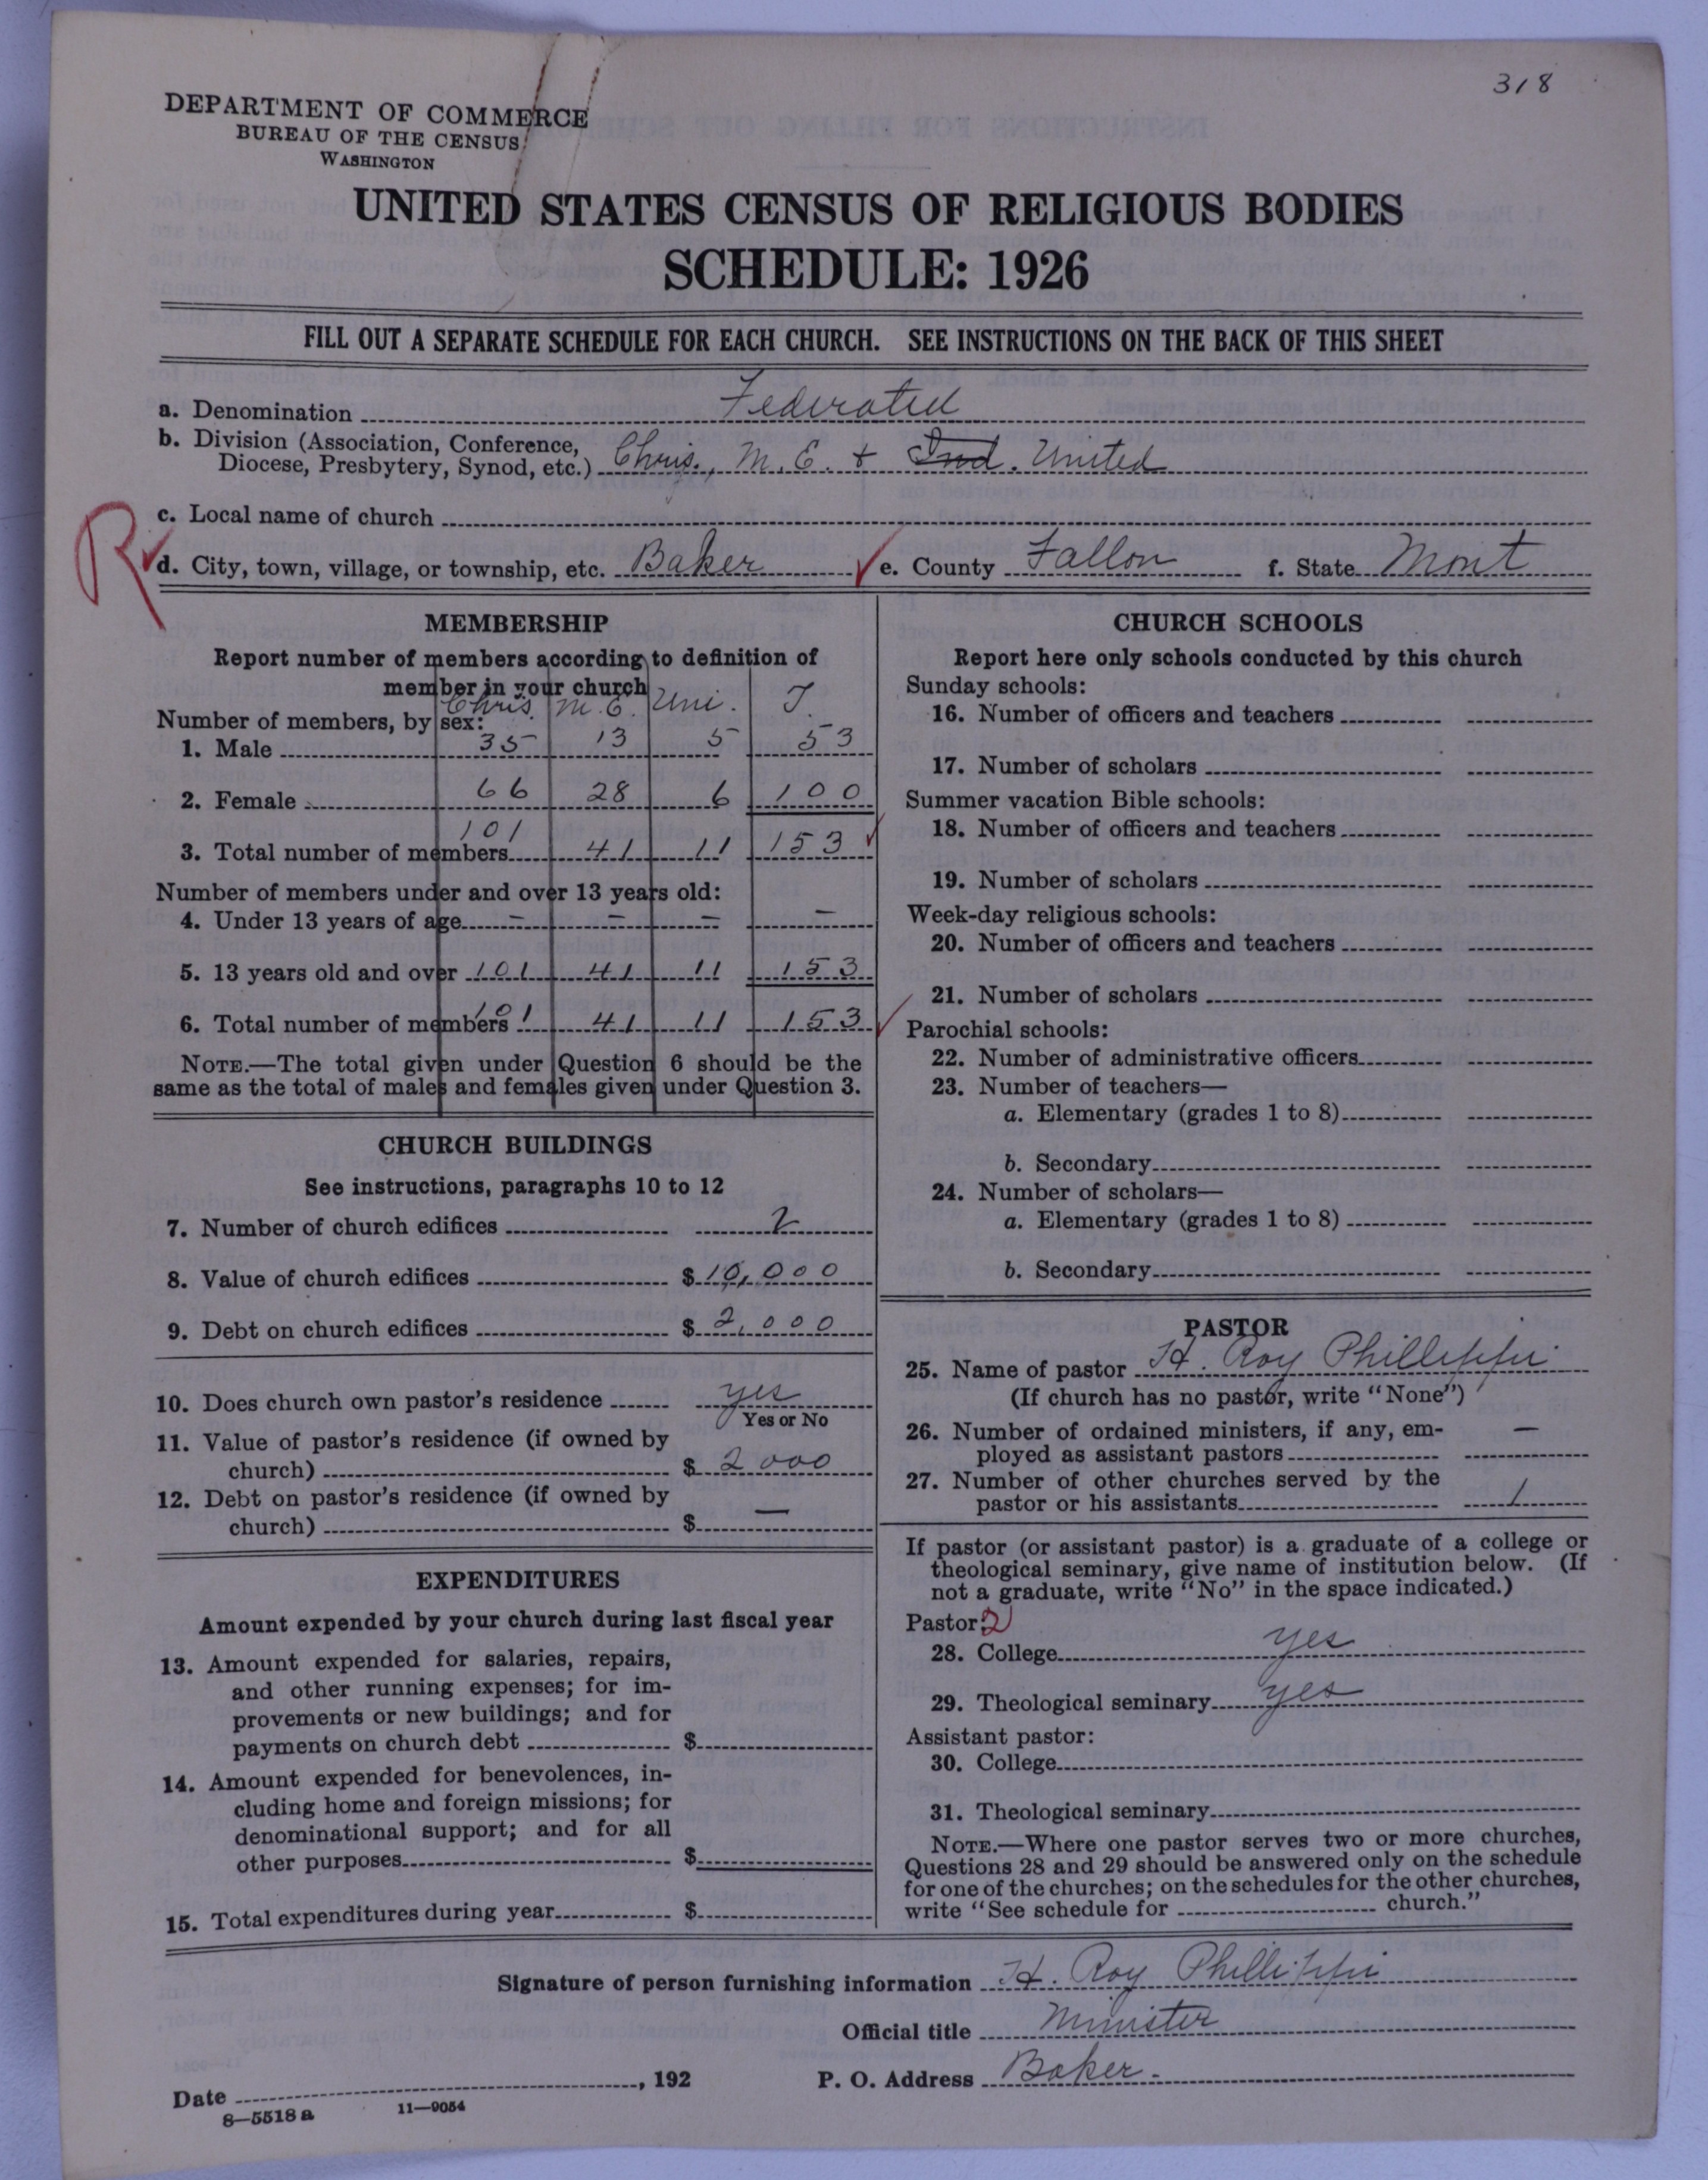 318
DEPARTMENT OF COMMERCE
BUREAU OF THE CENSUS
WASHINGTON
UNITED STATES CENSUS OF RELIGIOUS BODIES
SCHEDULE: 1926
FILL OUT A SEPARATE SCHEDULE FOR EACH CHURCH. SEE INSTRUCTIONS ON THE BACK OF THIS SHEET
a. Denomination Federated
b. Division (Association, Conference,
Diocese, Presbytery, Synod, etc.) Chris., M. E. + Ind. United
c. Local name of church
R
d. City, town, village, or township, etc. Baker e. County Fallon f. State Mont
MEMBERSHIP
Report number of members according to definition of
member in your church
Chris. M. E. Uni. T
Number of members, by sex:
1. Male 35 13 5 53
2. Female 66 28 6 100
3. Total number of members 101 41 11 153
Number of members under and over 13 years old:
4. Under 13 years of age – – – –
5. 13 years old and over 101 41 11 153
6. Total number of members 101 41 11 153
NOTE.—The total given under Question 6 should be the
same as the total of males and females given under Question 3.
CHURCH BUILDINGS
See instructions, paragraphs 10 to 12
7. Number of church edifices 2
8. Value of church edifices $10,000
9. Debt on church edifices $2,000
10. Does church own pastor's residence yes
Yes or No
11. Value of pastor's residence (if owned by
church) $ 2000
12. Debt on pastor's residence (if owned by
church) $ —
EXPENDITURES
Amount expended by your church during last fiscal year
13. Amount expended for salaries, repairs,
and other running expenses; for im-
provements or new buildings; and for
payments on church debt $
14. Amount expended for benevolences, in-
cluding home and foreign missions; for
denominational support; and for all
other purposes $
15. Total expenditures during year $
CHURCH SCHOOLS
Report here only schools conducted by this church
Sunday schools:
16. Number of officers and teachers
17. Number of scholars
Summer vacation Bible schools:
18. Number of officers and teachers
19. Number of scholars
Week-day religious schools:
20. Number of officers and teachers
21. Number of scholars
Parochial schools:
22. Number of administrative officers
23. Number of teachers—
a. Elementary (grades 1 to 8)
b. Secondary
24. Number of scholars—
a. Elementary (grades 1 to 8)
b. Secondary
PASTOR
25. Name of pastor H. Roy Phillippi
(If church has no pastor, write "None")
26. Number of ordained ministers, if any, em-
ployed as assistant pastors —
27. Number of other churches served by the
pastor or his assistants 1
If pastor (or assistant pastor) is a graduate of a college or
theological seminary, give name of institution below. (If
not a graduate, write "No" in the space indicated.)
Pastor: 2
28. College yes
29. Theological seminary yes
Assistant pastor:
30. College
31. Theological seminary
NOTE.—Where one pastor serves two or more churches,
Questions 28 and 29 should be answered only on the schedule
for one of the churches; on the schedules for the other churches,
write "See schedule for church."
Signature of person furnishing information H. Roy Phillippi
Official title Minister
Date , 192 P. O. Address Baker.
8—5518 a 11—9054